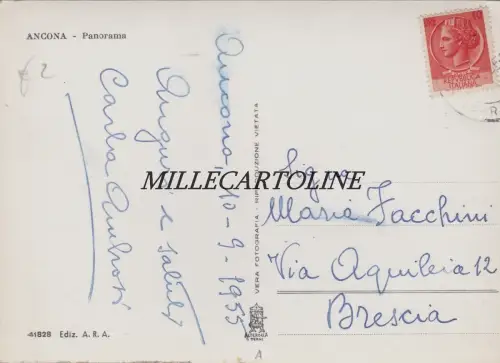 ANCONA - Panorama
£ 2
Ancona, 10-9-1955
Auguri e saluti
Carla Ambrosi
MILLECARTOLINE
VERA FOTOGRAFIA - RIPRODUZIONE VIETATA
Sig.na
Maria Facchini
Via Aquileia 12
Brescia
41828 Ediz. A. R. A.
A